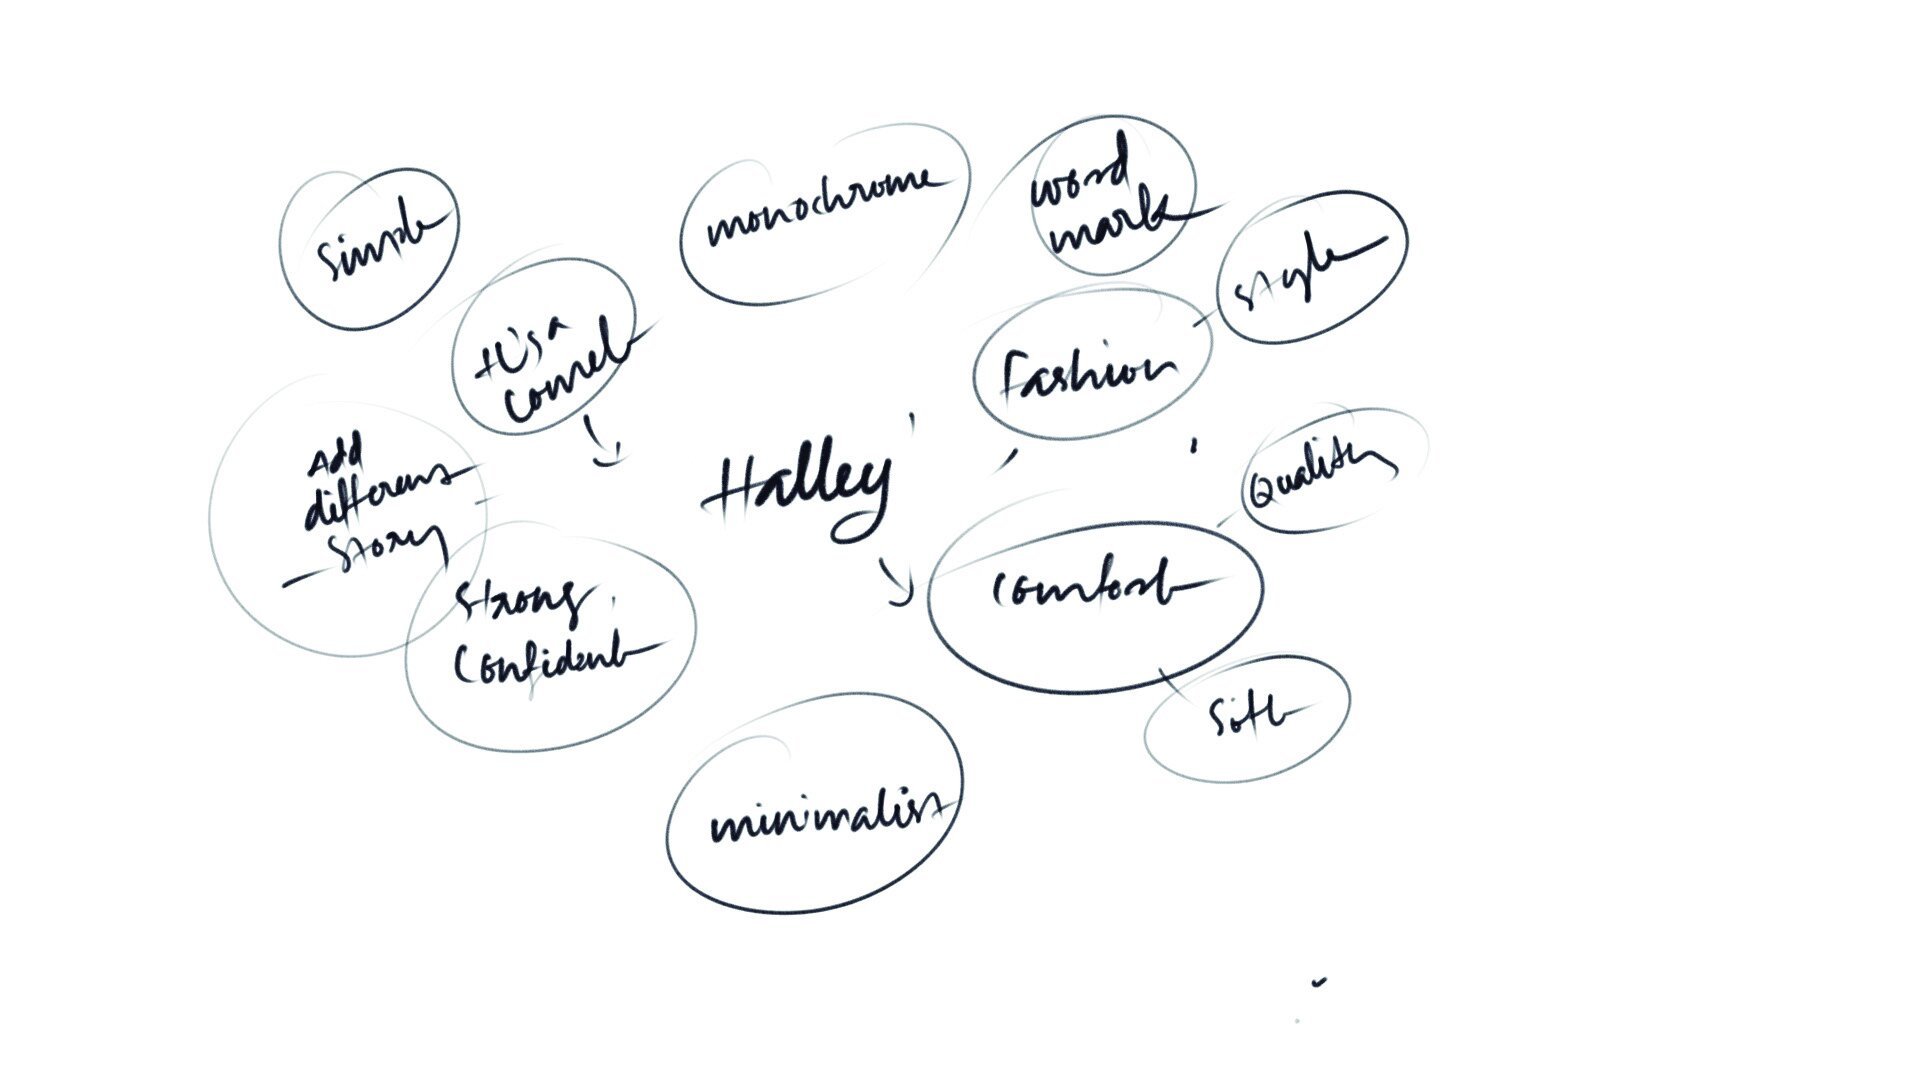 simple
monochrome
word
mark
style
It's a
comet
Fashion
Add
different
story
Halley
Quality
Strong
Confident
Comfort
Soft
minimalist